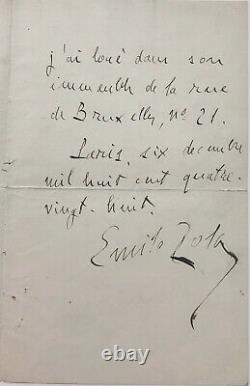 j'ai loué dans son
immeuble de la rue
de Bruxelles, no 21.
Paris, six décembre
mil huit cent quatre-
vingt-huit.
Emile Zola
ebay